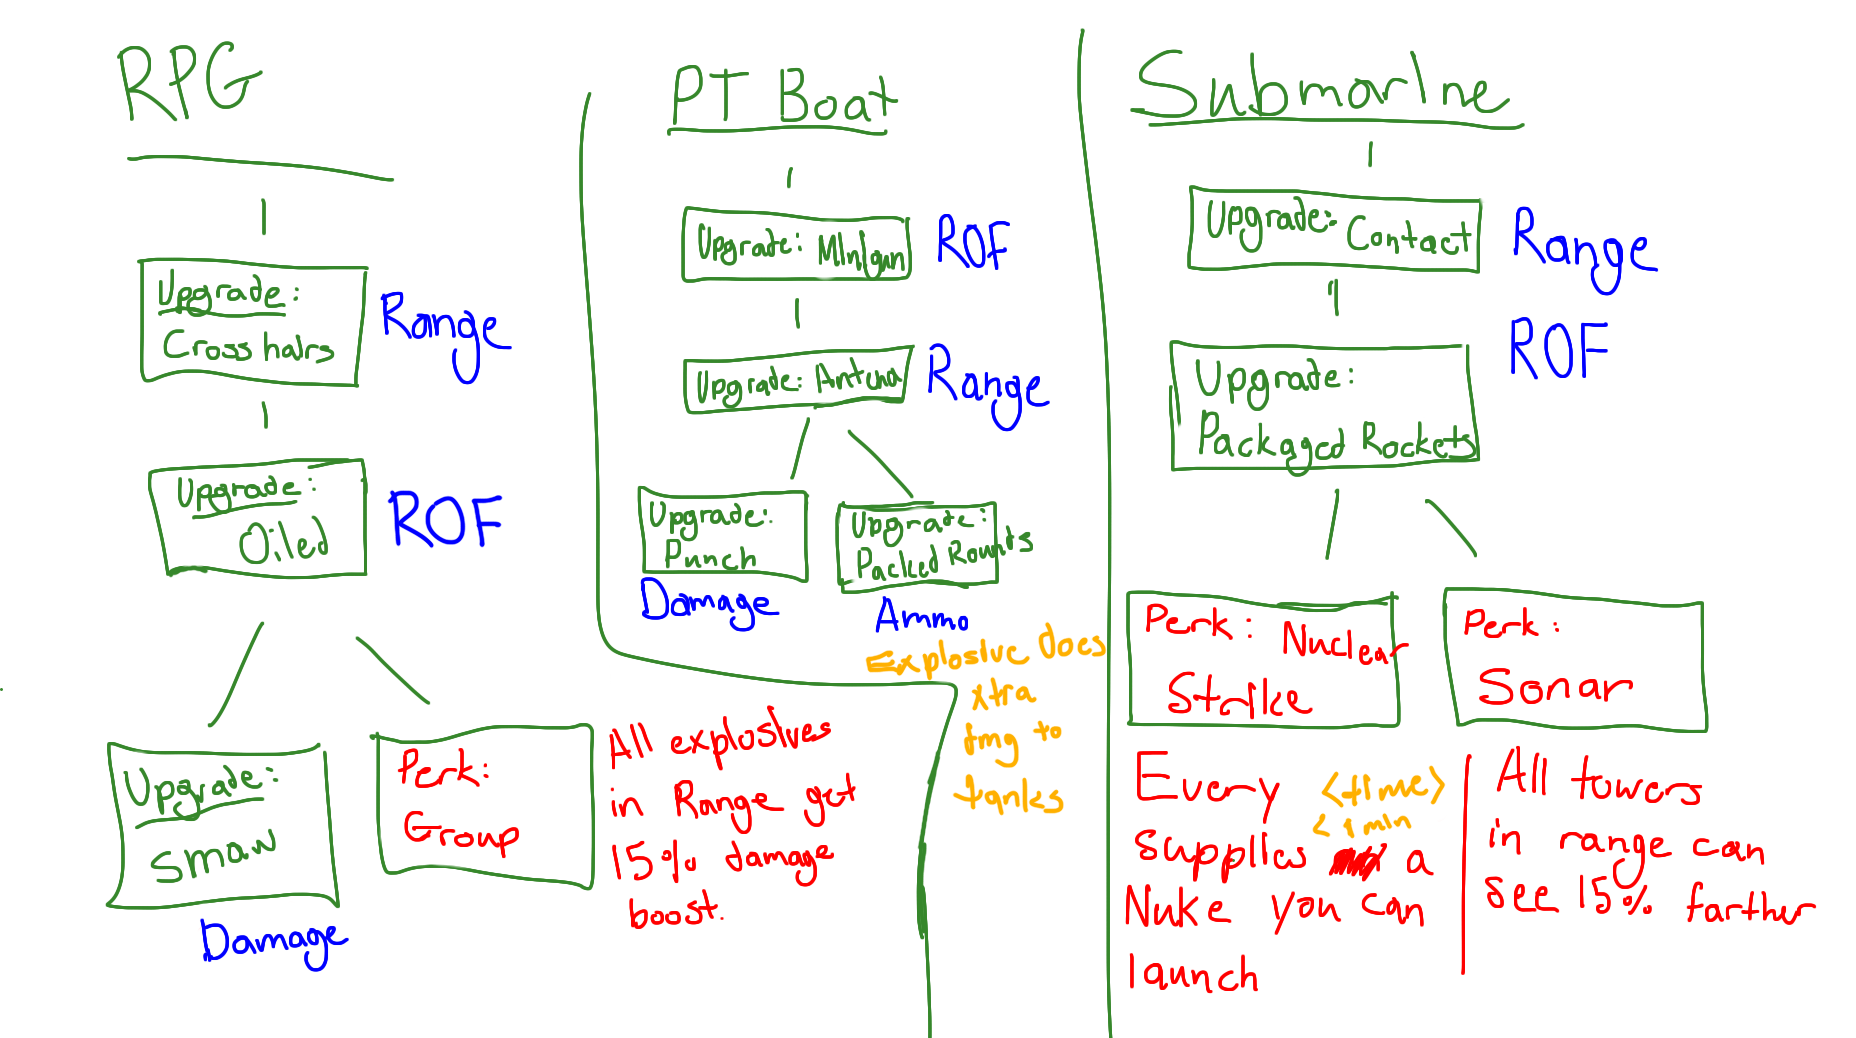 RPG
Upgrade:
Crosshairs
Range
Upgrade:
Oiled
ROF
Upgrade:
SMAW
Damage
Perk:
Group
All explosives
in Range get
15% damage
boost.
PT Boat
Upgrade: Minigun
ROF
Upgrade: Antena
Range
Upgrade:
Punch
Damage
Upgrade:
Packed Rounts
Ammo
Explosive does
xtra
dmg to
tanks
Submarine
Upgrade: Contact
Range
Upgrade:
Packaged Rockets
ROF
Perk: Nuclear
Strike
Every <time>
< 1 min
supplies a
Nuke you can
launch
Perk:
Sonar
All towers
in range can
see 15% farther